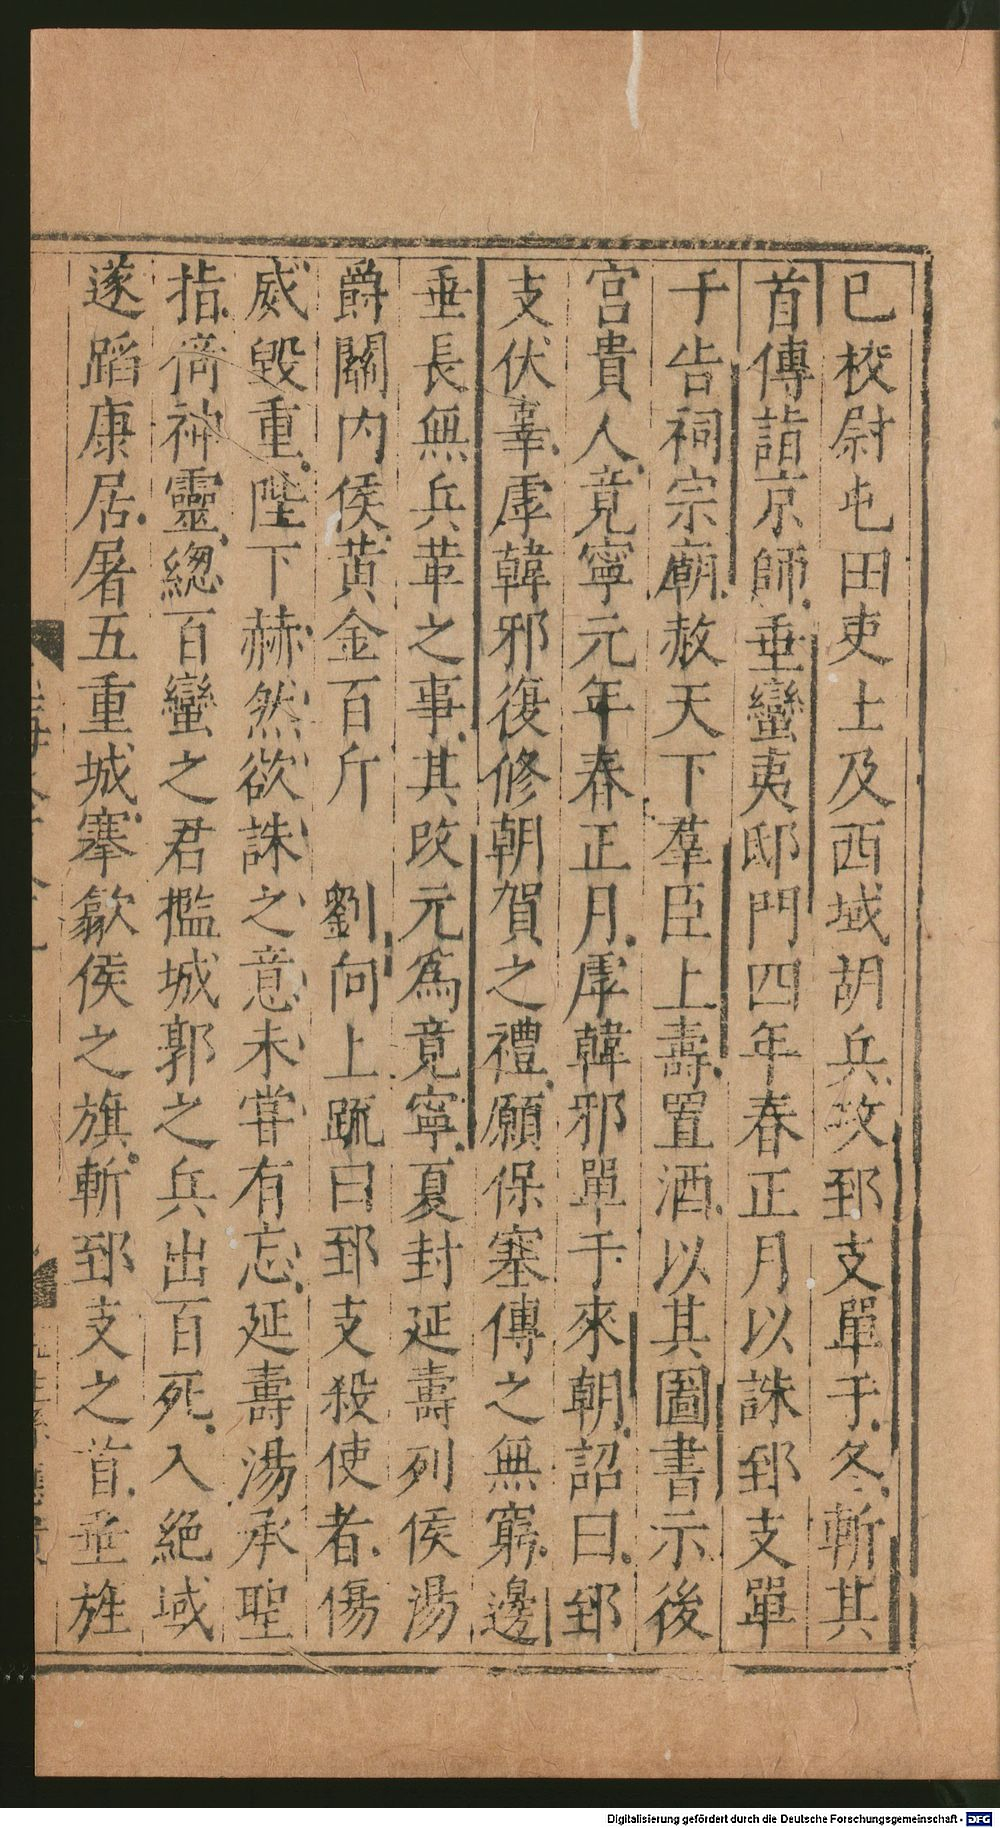 巳校尉屯田吏士及西域胡兵攻郅支單于冬斬其
首傳詣京師垂蠻夷邸門四年春正月以誅郅支單
于告祠宗廟赦天下羣臣上壽置酒以其圖書示後
宮貴人竟寧元年春正月虖韓邪單于來朝詔曰郅
支伏辜虖韓邪復修朝賀之禮願保塞傳之無窮邊
垂長無兵革之事其改元爲竟寧夏封延壽列侯湯
爵關内侯黃金百斤 劉向上疏曰郅支殺使者傷
威毀重陛下赫然欲誅之意未甞有忘延壽湯承聖
指倚神靈緫百蠻之君㩜城郭之兵出百死入絕域
遂蹈康居屠五重城搴歙侯之旗斬郅支之首垂旌
Digitalisierung gefördert durch die Deutsche Forschungsgemeinschaft - DFG